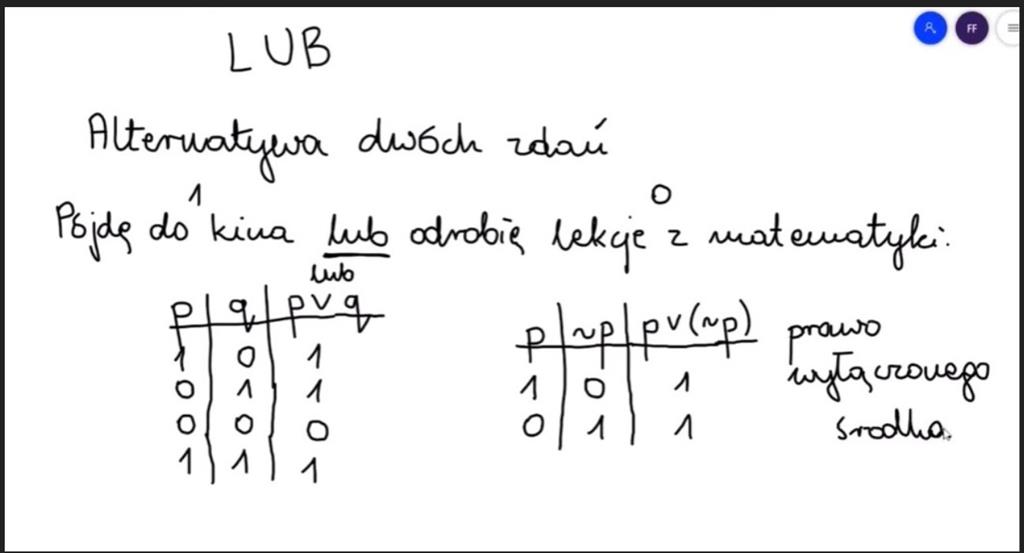 FF
LUB
Alternatywa dwóch zdań
1 0
Pójdę do kina lub odrobię lekcje z matematyki.
lub
p q p ∨ q
1 0 1
0 1 1
0 0 0
1 1 1
p ~p p ∨ (~p)
1 0 1
0 1 1
prawo
wyłączonego
środka